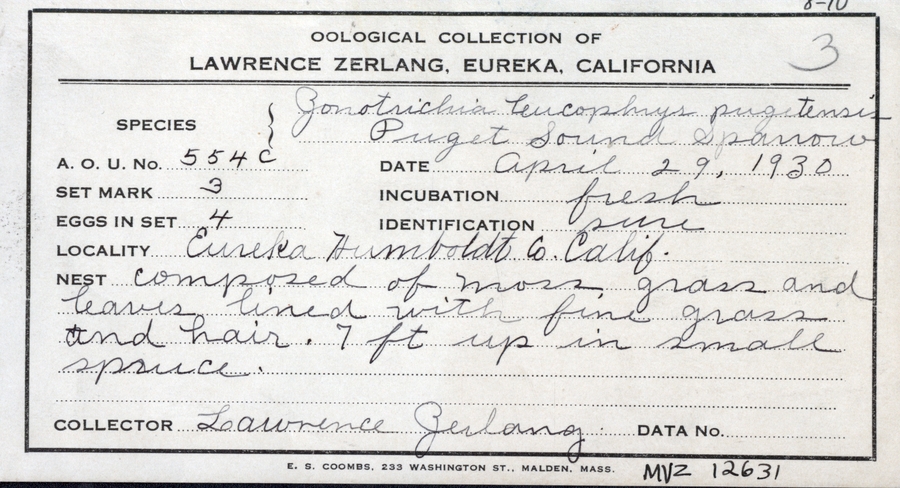 8-10
OOLOGICAL COLLECTION OF
LAWRENCE ZERLANG, EUREKA, CALIFORNIA
3
SPECIES { Zonotrichia leucophrys pugetensis
Puget Sound Sparrow
A. O. U. No. 554c DATE April 29, 1930
SET MARK 3 INCUBATION fresh
EGGS IN SET 4 IDENTIFICATION sure
LOCALITY Eureka Humboldt Co. Calif.
NEST composed of moss, grass and
leaves lined with fine grass
and hair. 7 ft up in small
spruce.
COLLECTOR Lawrence Zerlang. DATA No.
E. S. COOMBS, 233 WASHINGTON ST., MALDEN, MASS.
MVZ 12631